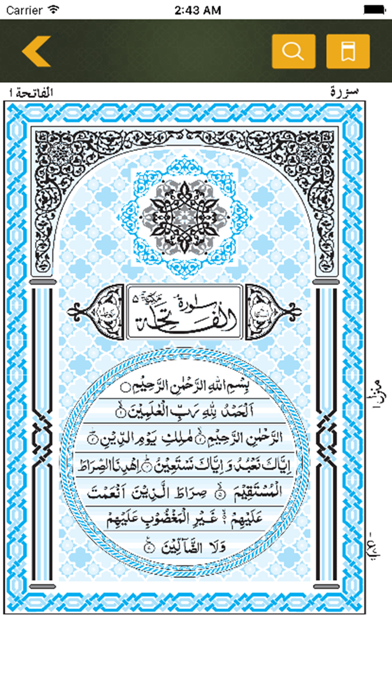 Carrier 2:43 AM
الفاتحة ١ سورة
سورة
الفاتحة مكية ٥
بِسْمِ اللّٰهِ الرَّحْمٰنِ الرَّحِيْمِ
اَلْحَمْدُ لِلّٰهِ رَبِّ الْعٰلَمِيْنَ ۙ
الرَّحْمٰنِ الرَّحِيْمِ ۙ مٰلِكِ يَوْمِ الدِّيْنِ ۗ
اِيَّاكَ نَعْبُدُ وَاِيَّاكَ نَسْتَعِيْنُ ۗ اِهْدِنَا الصِّرَاطَ
الْمُسْتَقِيْمَ ۙ صِرَاطَ الَّذِيْنَ اَنْعَمْتَ
عَلَيْهِمْ ۙ غَيْرِ الْمَغْضُوْبِ عَلَيْهِمْ
وَلَا الضَّآلِّيْنَ
منزل ١